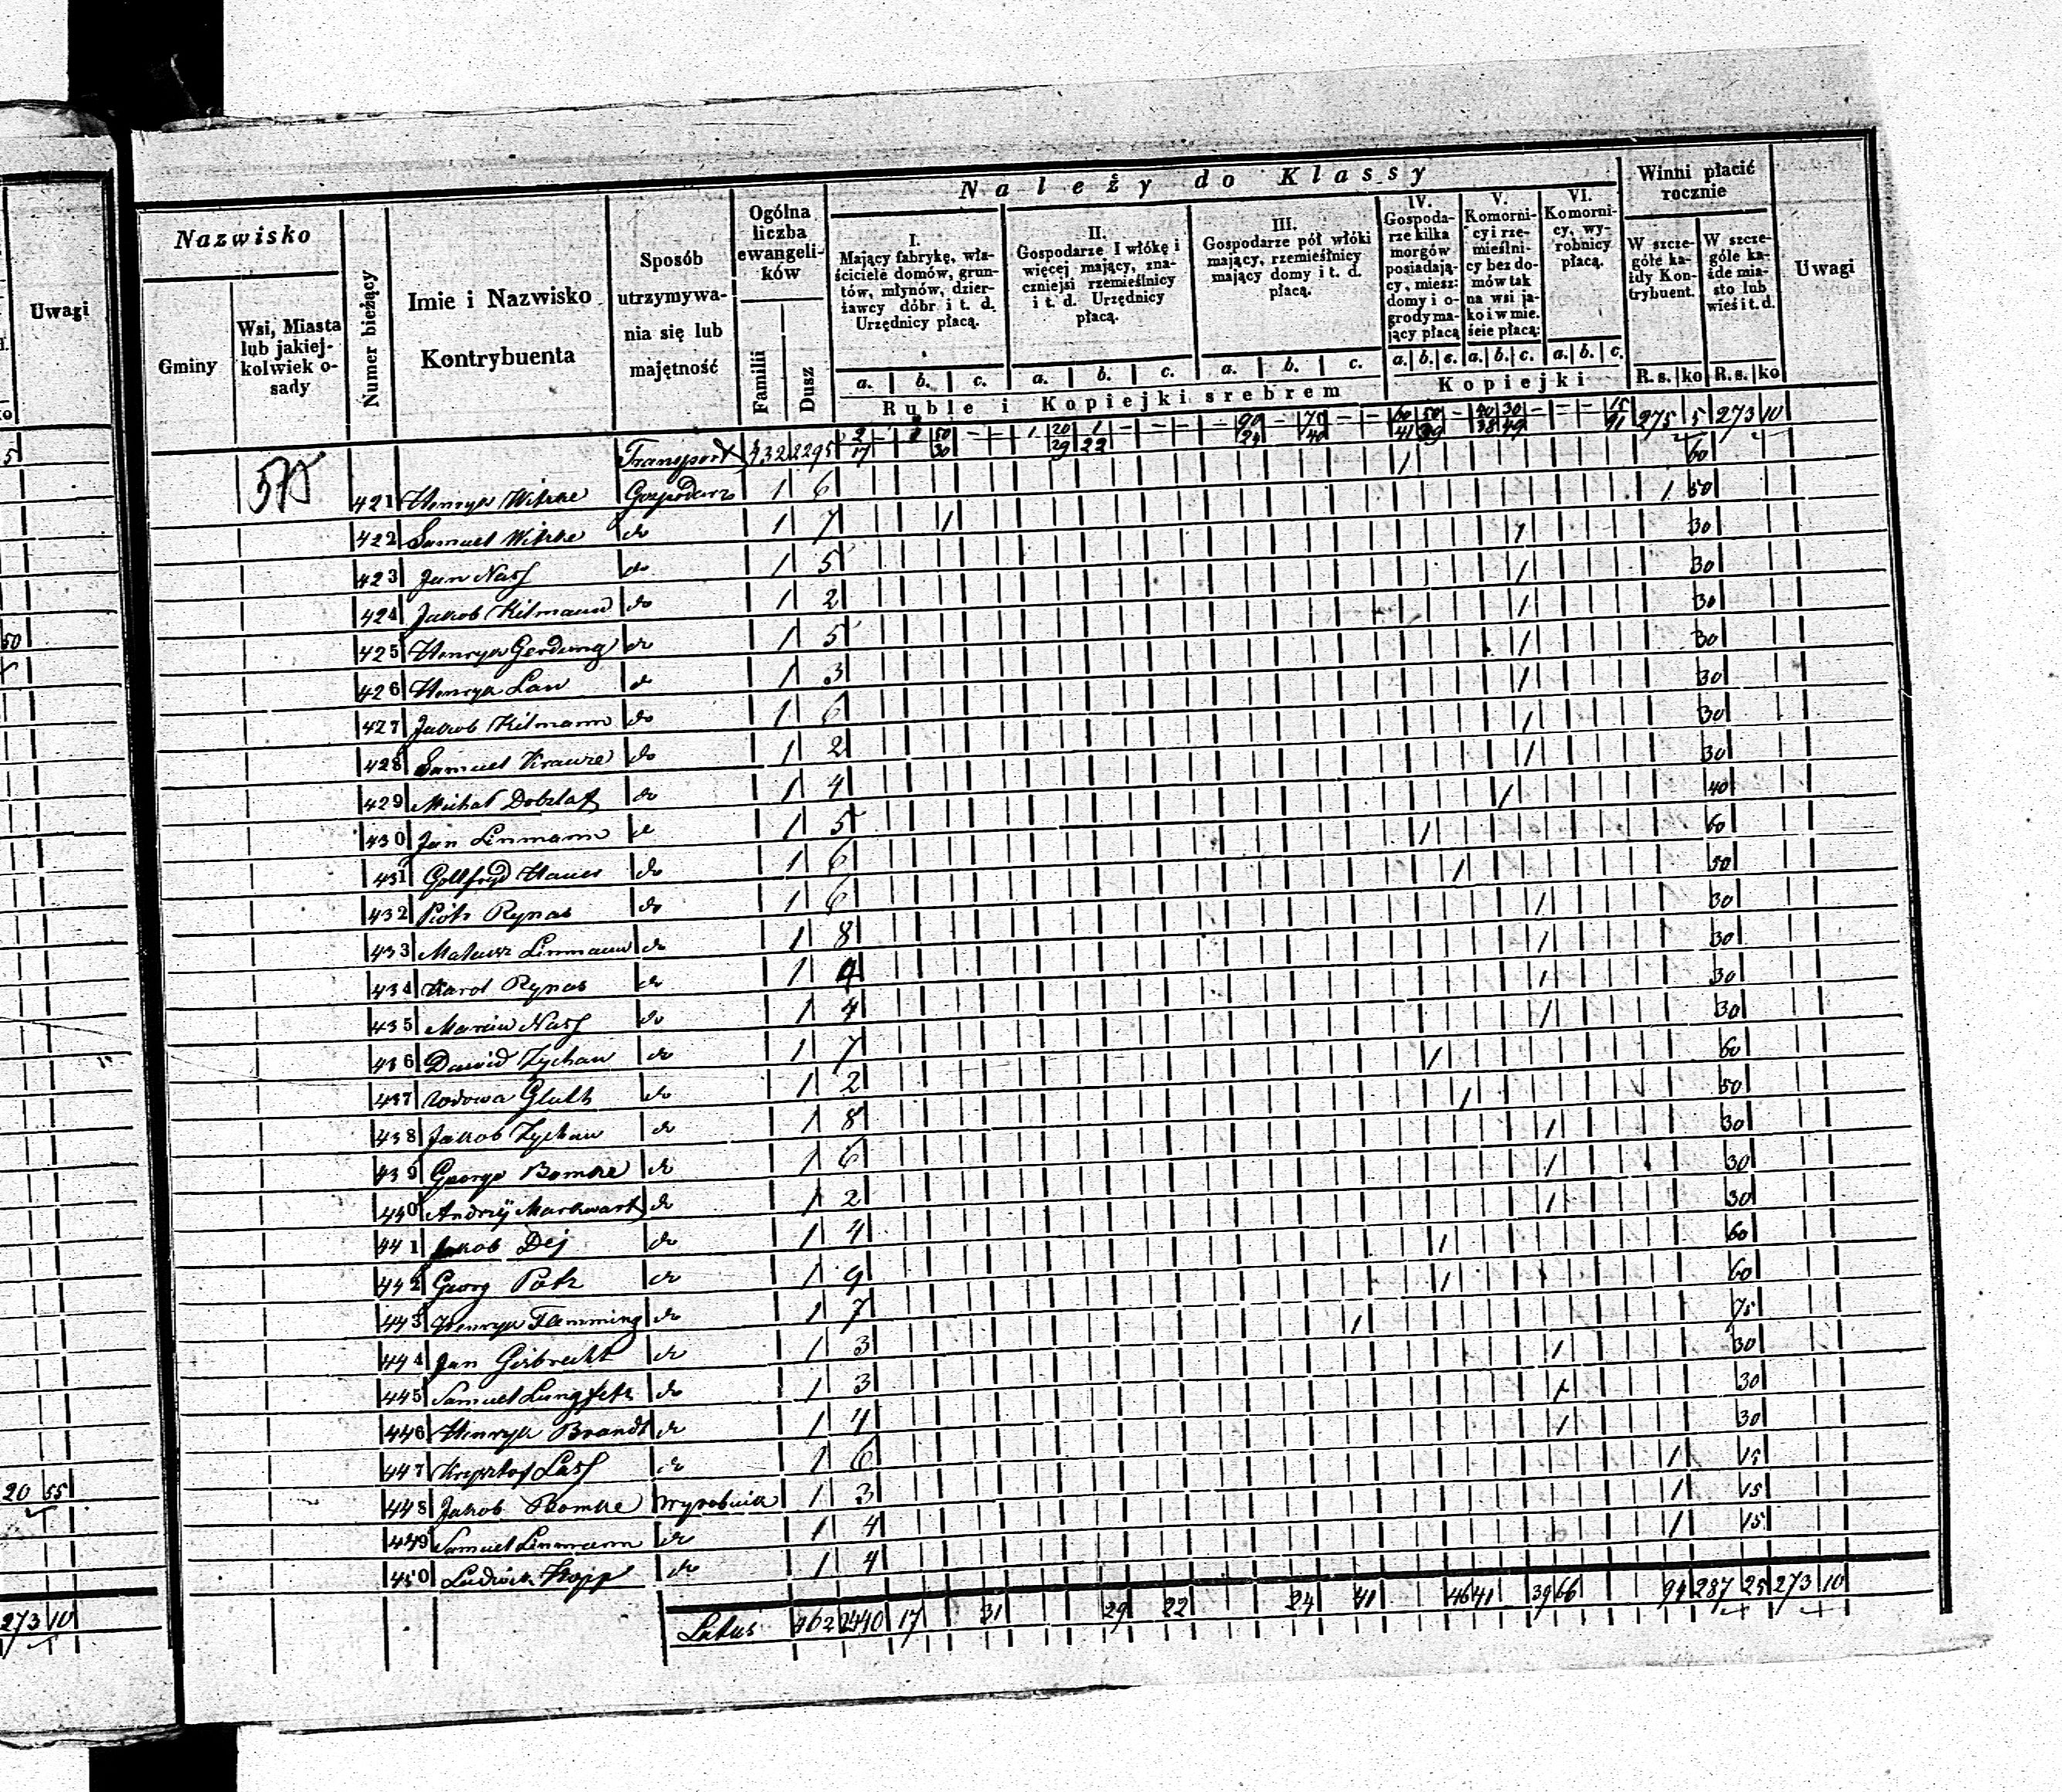 Uwagi
5
50
20 55
273 10
Należy do Klassy
Winni płacić rocznie
Nazwisko
Gminy
Wsi, Miasta lub jakiejkolwiek osady
Numer bieżący
Imie i Nazwisko Kontrybuenta
Sposób utrzymywania się lub majętność
Ogólna liczba ewangelików
Familii
Dusz
I. Mający fabrykę, właściciele domów, gruntów, młynów, dzierżawcy dóbr i t. d. Urzędnicy płacą.
II. Gospodarze I włókę i więcej mający, znaczniejsi rzemieślnicy i t. d. Urzędnicy płacą.
III. Gospodarze pół włóki mający, rzemieślnicy mający domy i t. d. płacą.
IV. Gospodarze kilka morgów posiadający, miesz: domy i ogrody mający płacą
V. Komornicy i rzemieślnicy bez domów tak na wsi jako i w mieście płacą:
VI. Komornicy, wyrobnicy płacą.
W szczególe każdy Kontrybuent.
W szczególe każde miasto lub wieś i t. d.
Uwagi
a. b. c. a. b. c. a. b. c. a. b. c. a. b. c. a. b. c.
Ruble i Kopiejki srebrem
Kopiejki
R. s. ko R. s. ko
Transport 432 2295 275 5 273 10
421 Henryk Witzke Gospodarz 1 6 1 60
422 Samuel Witzke do 1 7 1 1 50
423 Jan Nass do 1 5 1 30
424 Jakob Kilmann do 1 2 1 30
425 Henryk Gerdung do 1 5 1 30
426 Henryk Lau do 1 3 1 30
427 Jakob Kilmann do 1 6 1 30
428 Samuel Krauze do 1 2 1 30
429 Michał Dobzlaf do 1 4 1 30
430 Jan Linmann do 1 5 1 40
431 Gottfryd Hauer do 1 6 1 60
432 Piotr Rynas do 1 6 1 50
433 Mateusz Linmann do 1 8 1 30
434 Karol Rynas do 1 4 1 30
435 Marcin Nass do 1 4 1 30
436 Dawid Zychau do 1 7 1 30
437 wdowa Gluth do 1 2 1 60
438 Jakob Zychau do 1 8 1 50
439 George Bomke do 1 6 1 30
440 Andrzij Markwart do 1 2 1 30
441 Jakob Dej do 1 4 1 30
442 Georg Potz do 1 9 1 60
443 Henryk Flemming do 1 7 1 60
444 Jan Gisbrecht do 1 3 1 75
445 Samuel do 1 3 1 30
446 Henryk Brandt do 1 4 1 30
447 Krysztof Lass do 1 6 1 30
448 Jakob Bomke Wyrobnik 1 3 1 15
449 Samuel Linmann do 1 4 1 15
450 Ludwik Kopp do 1 4 1 15
Latus 462 2440 17 31 29 22 24 41 46 41 39 66 94 287 25 273 10